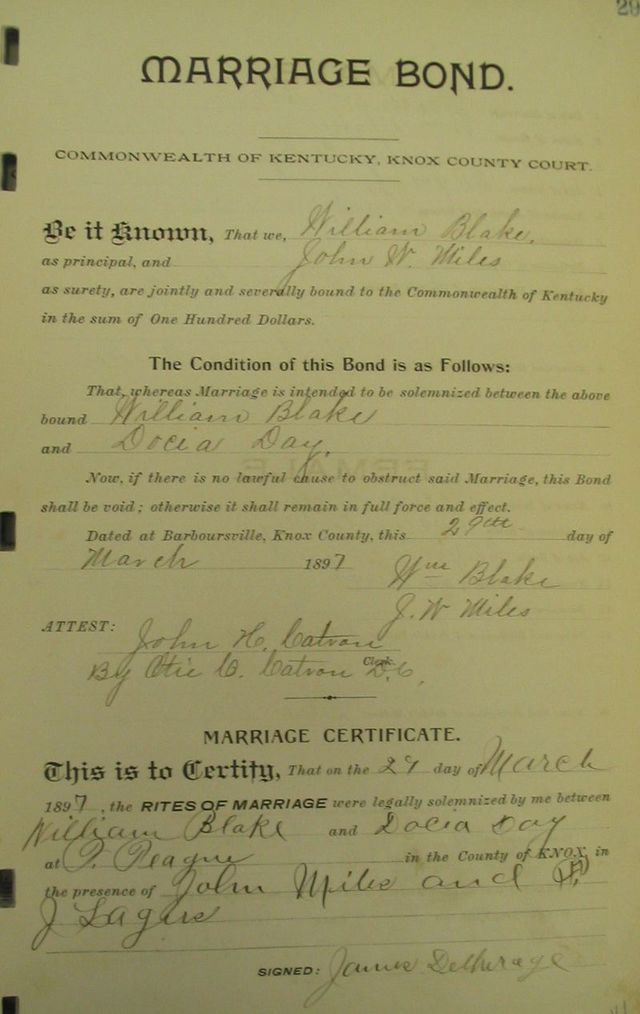 29
MARRIAGE BOND.
COMMONWEALTH OF KENTUCKY, KNOX COUNTY COURT.
Be it Known, That we, William Blake,
as principal, and John W. Miles
as surety, are jointly and severally bound to the Commonwealth of Kentucky
in the sum of One Hundred Dollars.
The Condition of this Bond is as Follows:
That, whereas Marriage is intended to be solemnized between the above
bound William Blake
and Docia Day,
Now, if there is no lawful cause to obstruct said Marriage, this Bond
shall be void; otherwise it shall remain in full force and effect.
Dated at Barboursville, Knox County, this 29th day of
March 1897
Wm Blake
J. W Miles
ATTEST: John H. Catron
Clerk
By Otie C. Catron D.C.
MARRIAGE CERTIFICATE.
This is to Certify, That on the 29 day of March
1897, the RITES OF MARRIAGE were legally solemnized by me between
William Blake and Docia Day
at P. in the County of KNOX, in
the presence of John Miles and
J
SIGNED: James Detherage